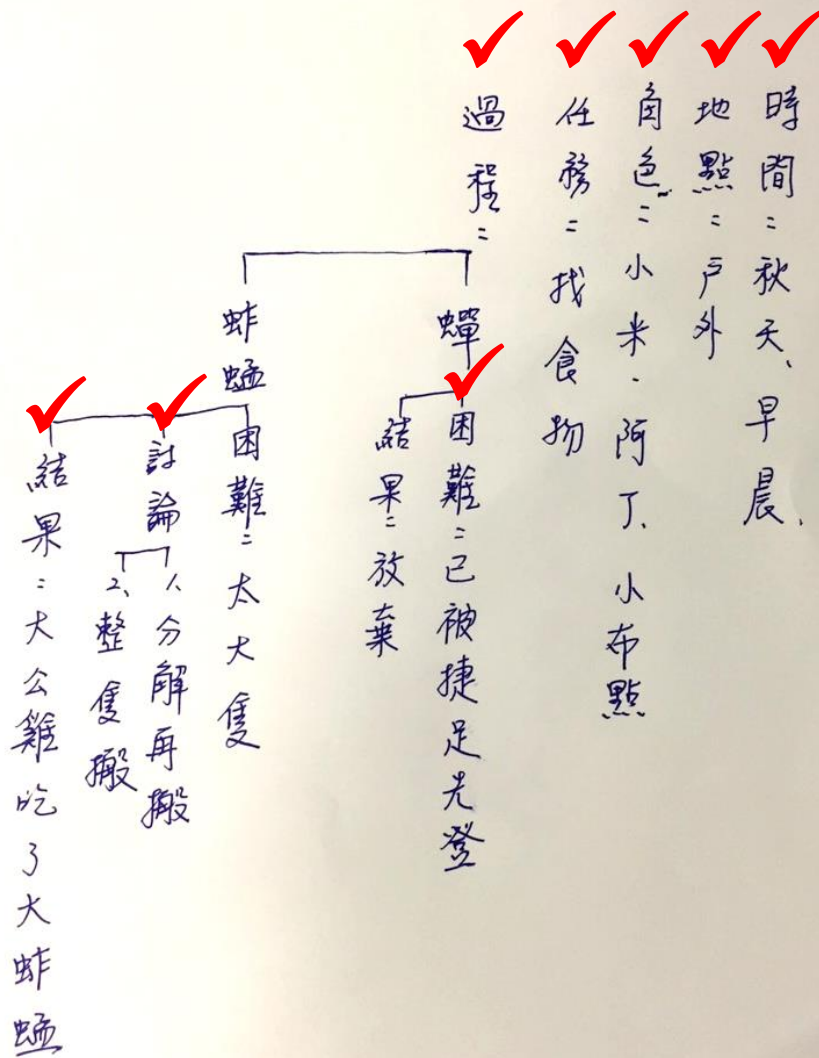 時間：秋天、早晨、
地點：戶外
角色：小米、阿丁、小布點
任務：找食物
過程：
蟬
困難：已被捷足先登
結果：放棄
蚱蜢
困難：太大隻
討論
1、分解再搬
2、整隻搬
結果：大公雞吃了大蚱蜢